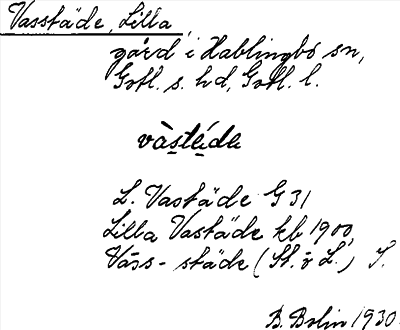 Vasstäde, Lilla,
gård i Hablingbo sn,
Gotl. s. hd, Gotl. l.
vàstéde
L. Vastäde G 31
Lilla Vastäde kb 1900
Väss-städe (St. o L.) S.
B. Bolin 1930